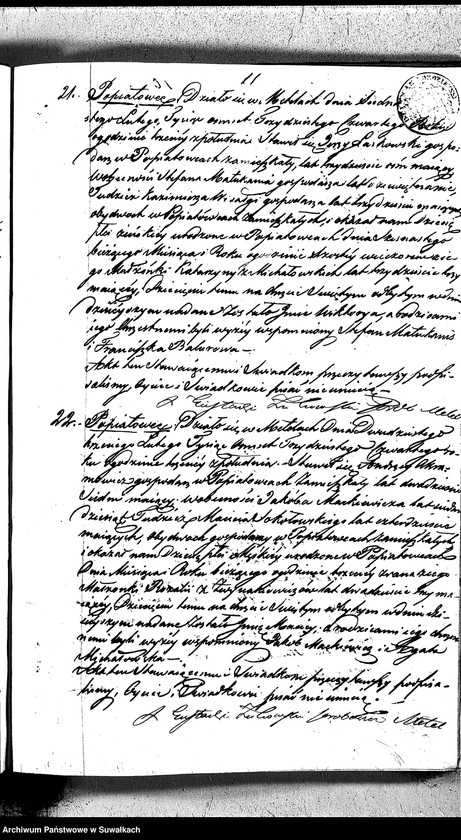 11
21. Popiatowce, Działo się w Metelach dnia
stego Lutego Tysiąc ośmset Trzydziestego Czwartego Roku
o godzinie trzeciej z południa Stawił się Jerzy Laskowski gospo-
darz w Popiatowcach zamieszkały, lat trzydzieści ośm mający
w obecności Stefana gospodarza lat
Tudzież Kazimierza gospodarza lat trzydzieści mających
obydwóch w Popiatowcach zamieszkałych, i okazał nam Dziecię
płci żeńskiej urodzone w Popiatowcach dnia
bieżącego Miesiąca i Roku o godzinie szóstej wieczorem z je-
go Małżonki Katarzyny z Michałowskich lat trzydzieści trzy
mającej, Dziecięciu temu na chrzcie Świętym odbytym w dniu
dzisiejszym nadane zostało Imie Wiktorya, a rodzicami
jego chrzestnemi byli wyżej wspomniony Stefan
i Franciszka Balurowa.—
Akt ten Stawającemu i Świadkom przeczytawszy podpi-
saliśmy, Ojciec i Świadkowie pisać nie umieją.—
X. Metel
22. Popiatowce, Działo się w Metelach Dnia Dwudziestego
trzeciego Lutego Tysiąc ośmset Trzydziestego Czwartego ro-
ku o godzinie trzeciej z południa. Stawił się Andrzej
gospodarz w Popiatowcach zamieszkały lat dwadzieścia
siedm mający w obecności Jakóba Markiewicza lat
dziesiąt Tudzież Macieja Sokołowskiego lat czterdzieści
mających, obydwóch gospodarzy w Popiatowcach zamieszkałych
i okazał nam Dziecię płci Męskiej urodzone w Popiatowcach
Dnia Miesiąca i Roku bieżącego o godzinie trzeciej z rana z jego
Małżonki Rozalii z lat dwadzieścia trzy ma-
jącej, Dziecięciu temu na chrzcie Świętym odbytym w dniu dzi-
siejszym nadane zostało Imie Maciej, a rodzicami jego chrzest-
nemi byli wyżej wspomniony Jakób Markiewicz i Agata
Michałowska.—
Akt ten Stawającemu i Świadkom przeczytawszy podpisa-
liśmy, Ojciec i Świadkowie pisać nie umieją.—
X. Metel
Archiwum Państwowe w Suwałkach